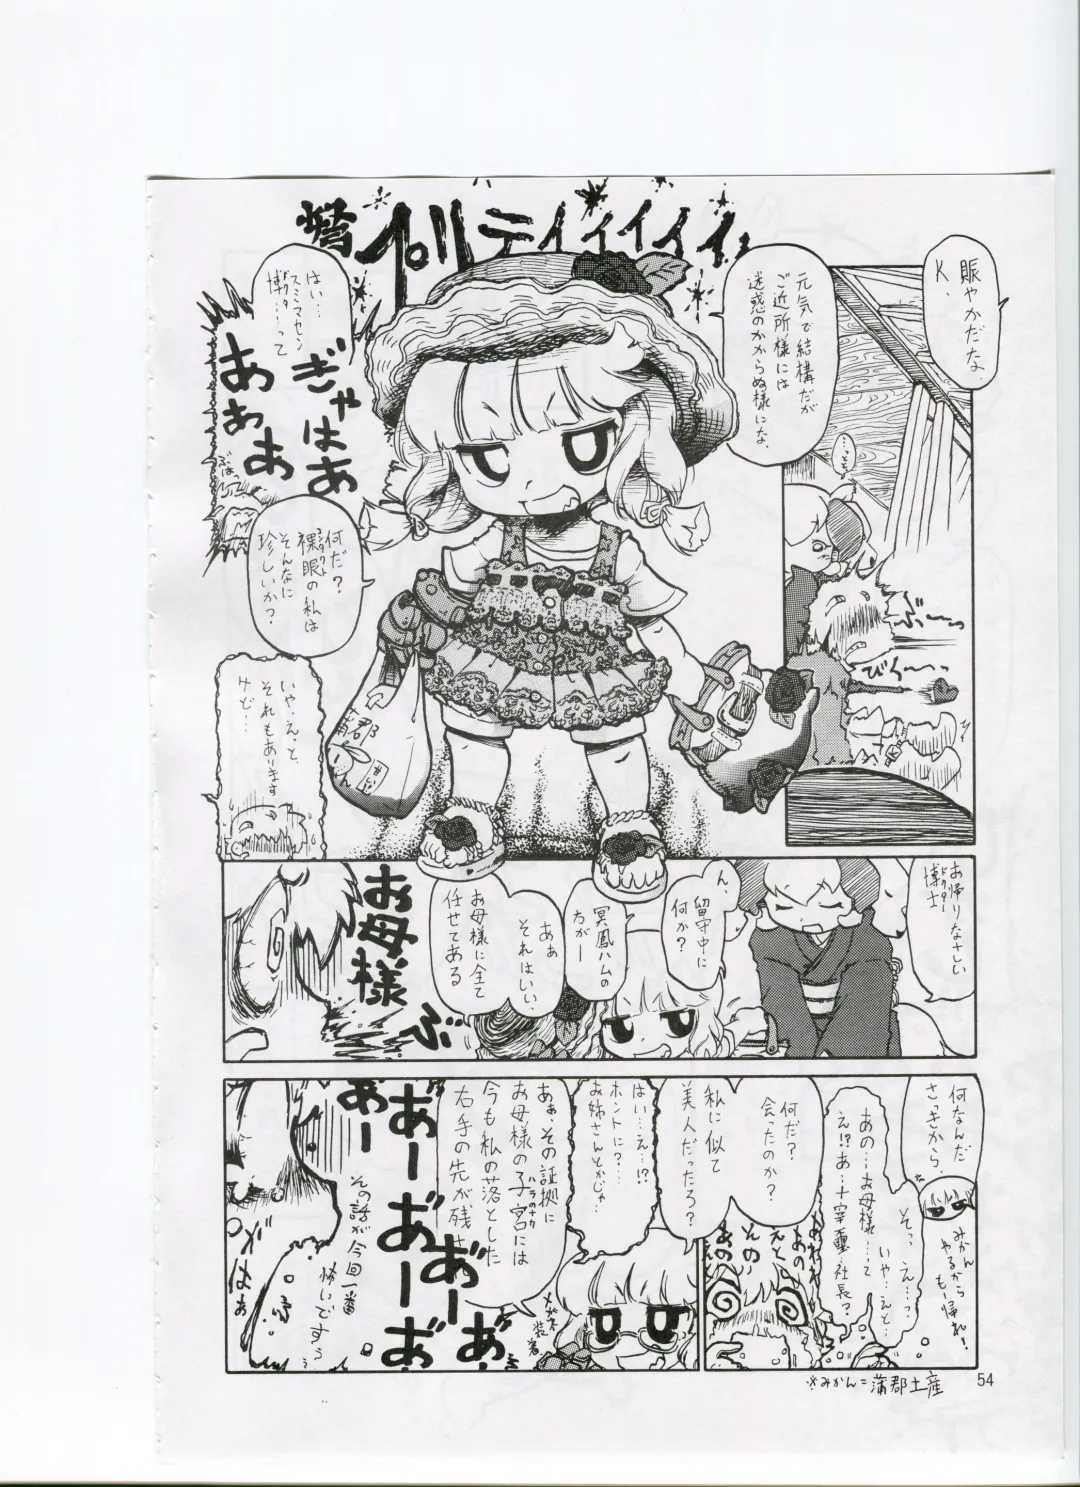 賑やかだな、
K、
元気で結構だが
ご近所様には
迷惑のかからぬ様にな、
…っち
プリティィィィィ
はい…
スミマセン
博士…って
ドクター
ぎゃはあ
あああ
ぶは
何だ？
裸眼の私は
コンタクト
そんなに
珍しいか？
いや…えっと、
それもあります
けど…
ぶーっ
びちーっ
蒲郡
みかん
お帰りなさい
博士
ドクター
ん、
留守中に
何か？
冥鳳ハムの
方がー
あぁ
それはいい
お母様に全て
任せてある
お母様
ぶ
何なんだ
さっきから、
みかん
やるから
もー帰れ！
そっっ
え…っ
いや…えと…
あの…お母様…って
え!?あ…十宰璽社長？
あのえと
その
あの
何だ？
会ったのか？
私に似て
美人だったろ？
はい…え…!?
ホントに？…
お姉さんとかじゃ…
あぁ、その証拠に
お母様の子宮には
ハラのナカ
今も私の落とした
右手の先が残さ
めがね
装着
あーあーあー
おーおーおー
その話が今回一番
怖いですぅ
※みかん=蒲郡土産
54